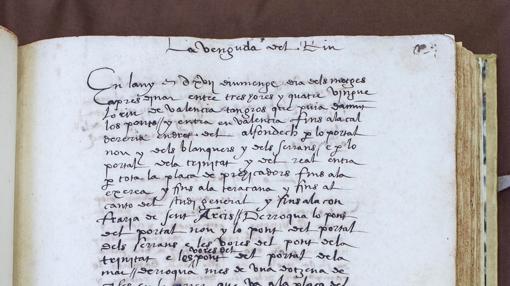 La venguda del Riu
En lany m dxvii diumenge dia dels metges
apres dinar entre tres ores y quatre vingue
lo riu de valencia tan gros que puia damunt
los ponts // y entra en valencia fins ala cal
dereria endret del alfondech p lo portal
nou y dels blanquers y dels serrans, e p lo
portal dela trinitat y del real entra
p tota la plaça de predicadors fins ala
exerea y fins ala teraçana y fins al
canto del studi general y fins ala con
fraria de sent Arcis // Derroqua lo pont
del portal nou y lo pont del portal
dels serrans e les vores del pont dela
trinitat e les vores del pont del portal dela
mar // derroqua mes de una dotzena de